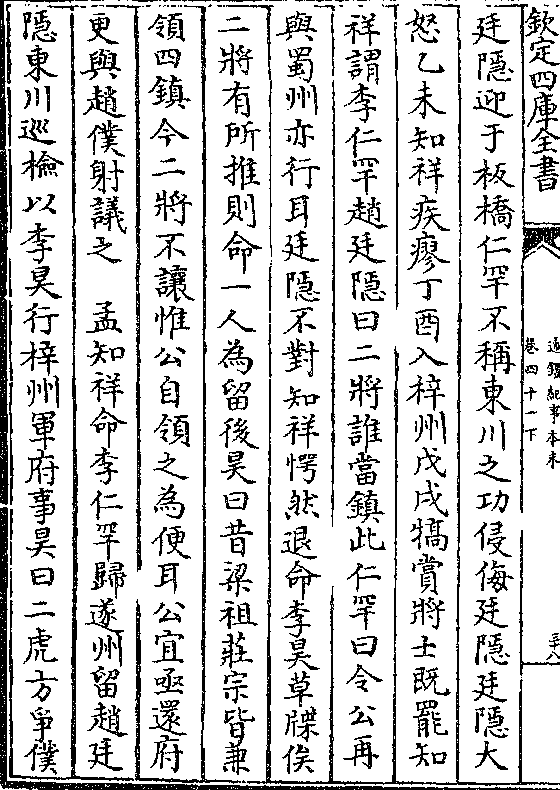 欽定四庫全書
通鑑紀事本末
卷四十一下
三十八
廷隱迎于板橋仁罕不稱東川之功侵侮廷隱廷隱大
怒乙未知祥疾瘳丁酉入梓州戊戌犒賞將士既罷知
祥謂李仁罕趙廷隱曰二將誰當鎮此仁罕曰令公再
與蜀州亦行耳廷隱不對知祥愕然退命李昊草牒俟
二將有所推則命一人為留後昊曰昔梁祖莊宗皆兼
領四鎮今二將不讓惟公自領之為便耳公宜亟還府
更與趙僕射議之 孟知祥命李仁罕歸遂州留趙廷
隱東川巡檢以李昊行梓州軍府事昊曰二虎方爭僕